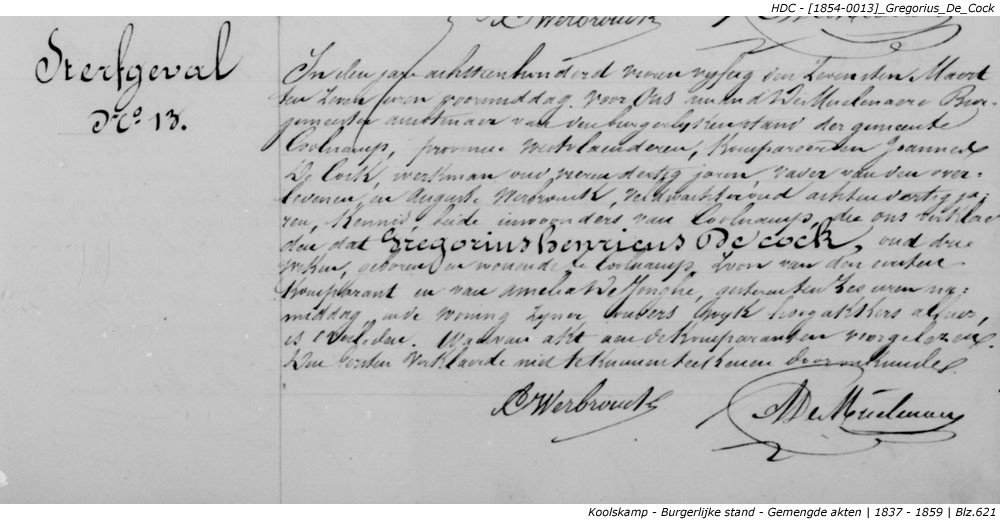 HDC - [1854-0013]_Gregorius_De_Cock
Sterfgeval
N.o 13.
In den jare achttienhonderd vieren vyftig den Zevensten Maart
ten Zeven uren voormiddag voor Ons amand De Muelenaere Bur-
gemeester amtenaer van den burgerlyken stand der gemeente
Coolscamp, provincie westvlaenderen, Komparreerden Joannes
De Cock, werkman oud vierendertig jaren, vader van den over-
ledenen, en Auguste Werbrouck, veldwachter oud achtenveertig ja-
ren, Kennis, beide inwoonders van Coolscamp, die ons verklaer
den dat Gregorius henricus De cock, oud drie
weken, geboren en woonende te Coolscamp, Zoon van den eersten
Komparant en van amelia De Jonghe, gisteren ten Zes uren na-
middag, in de woning Zyner ouders wyk hoogakkers alhier,
is overleden. Waervan akt aen de Komparanten voorgelezen.
Den eersten verklaerde niet te kunnen teekenen door onkunde.
A Werbrouck
A De Muelenaere
Koolskamp - Burgerlijke stand - Gemengde akten | 1837 - 1859 | Blz.621